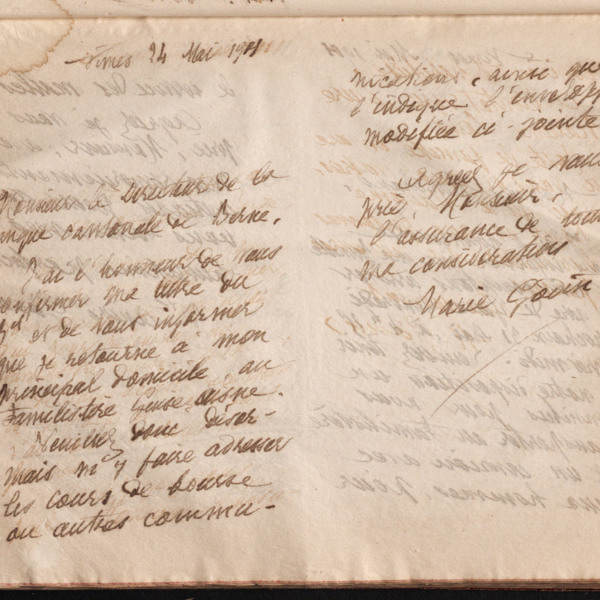 Nimes 24 Mai 1911
Monsieur le Directeur de la
Banque cantonale de Berne.
J'ai l'honneur de vous
confirmer ma lettre du
et de vous informer
que je retourne à mon
principal domicile, au
Familistère Guise aisne.
Veuillez donc désor-
mais m'y faire adresser
les cours de bourse
ou autres commu-
nications, ainsi que
l'indique l'envelopp
modifiée ci-jointe
Agréez je vous
prie, Monsieur,
l'assurance de tou
ma considération
Marie Godin